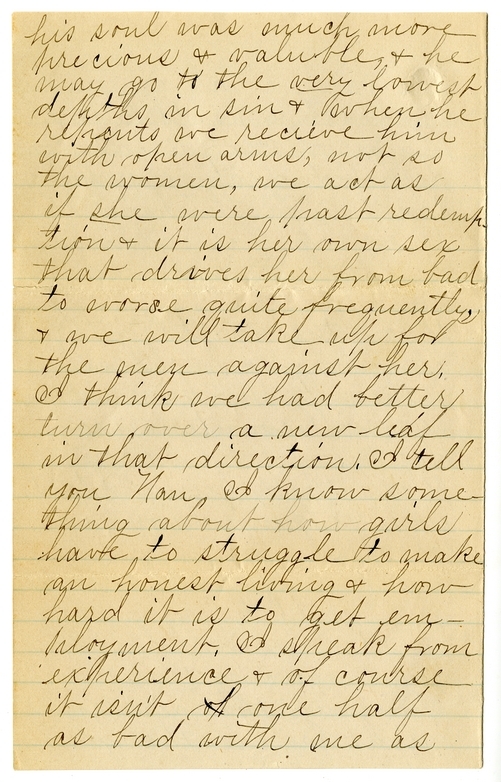 his soul was much more
precious & valuable, & he
may go to the very lowest
depths in sin & when he
repents we recieve him
with open arms, not so
the women, we act as
if she were past redemp-
tion & it is her own sex
that drives her from bad
to worse quite frequently,
& we will take up for
the men against her.
I think we had better
turn over a new leaf
in that direction. I tell
you Nan, I know some-
thing about how girls
have to struggle to make
an honest living & how
hard it is to get em-
ployment. I speak from
experience & of course
it isn't of one half
as bad with me as